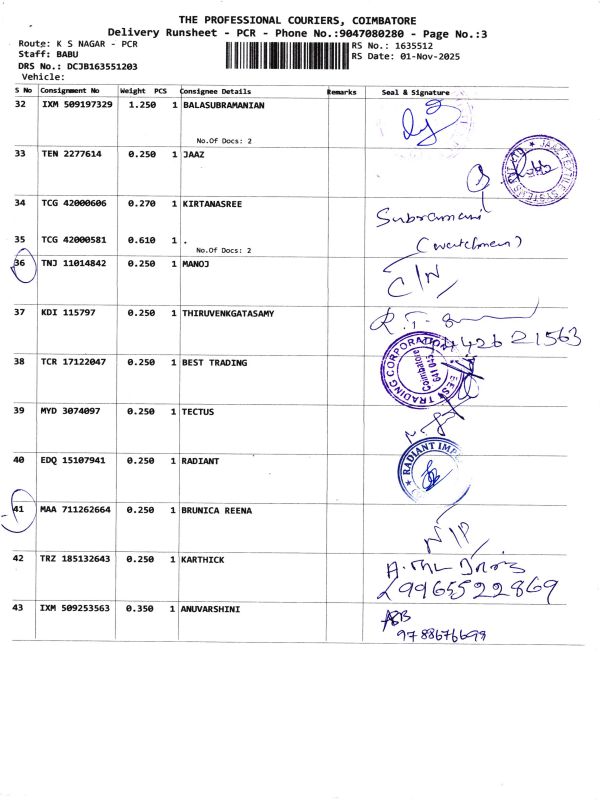 THE PROFESSIONAL COURIERS, COIMBATORE
Delivery Runsheet - PCR - Phone No.:9047080280 - Page No.:3
Route: K S NAGAR - PCR
Staff: BABU
DRS No.: DCJB163551203
Vehicle:
RS No.: 1635512
RS Date: 01-Nov-2025
S No Consignment No Weight PCS Consignee Details Remarks Seal & Signature
32 IXM 509197329 1.250 1 BALASUBRAMANIAN
No.Of Docs: 2
33 TEN 2277614 0.250 1 JAAZ
JAAZ TEXTILE SYSTEMS PVT LTD
34 TCG 42000606 0.270 1 KIRTANASREE
Subramani
35 TCG 42000581 0.610 1 .
(watchman)
No.Of Docs: 2
36 TNJ 11014842 0.250 1 MANOJ
C/N
37 KDI 115797 0.250 1 THIRUVENKGATASAMY
38 TCR 17122047 0.250 1 BEST TRADING
BEST TRADING CORPORATION
Coimbatore
641 043
39 MYD 3074097 0.250 1 TECTUS
40 EDQ 15107941 0.250 1 RADIANT
RADIANT
41 MAA 711262664 0.250 1 BRUNICA REENA
N/P
42 TRZ 185132643 0.250 1 KARTHICK
9965522869
43 IXM 509253563 0.350 1 ANUVARSHINI
9788676699